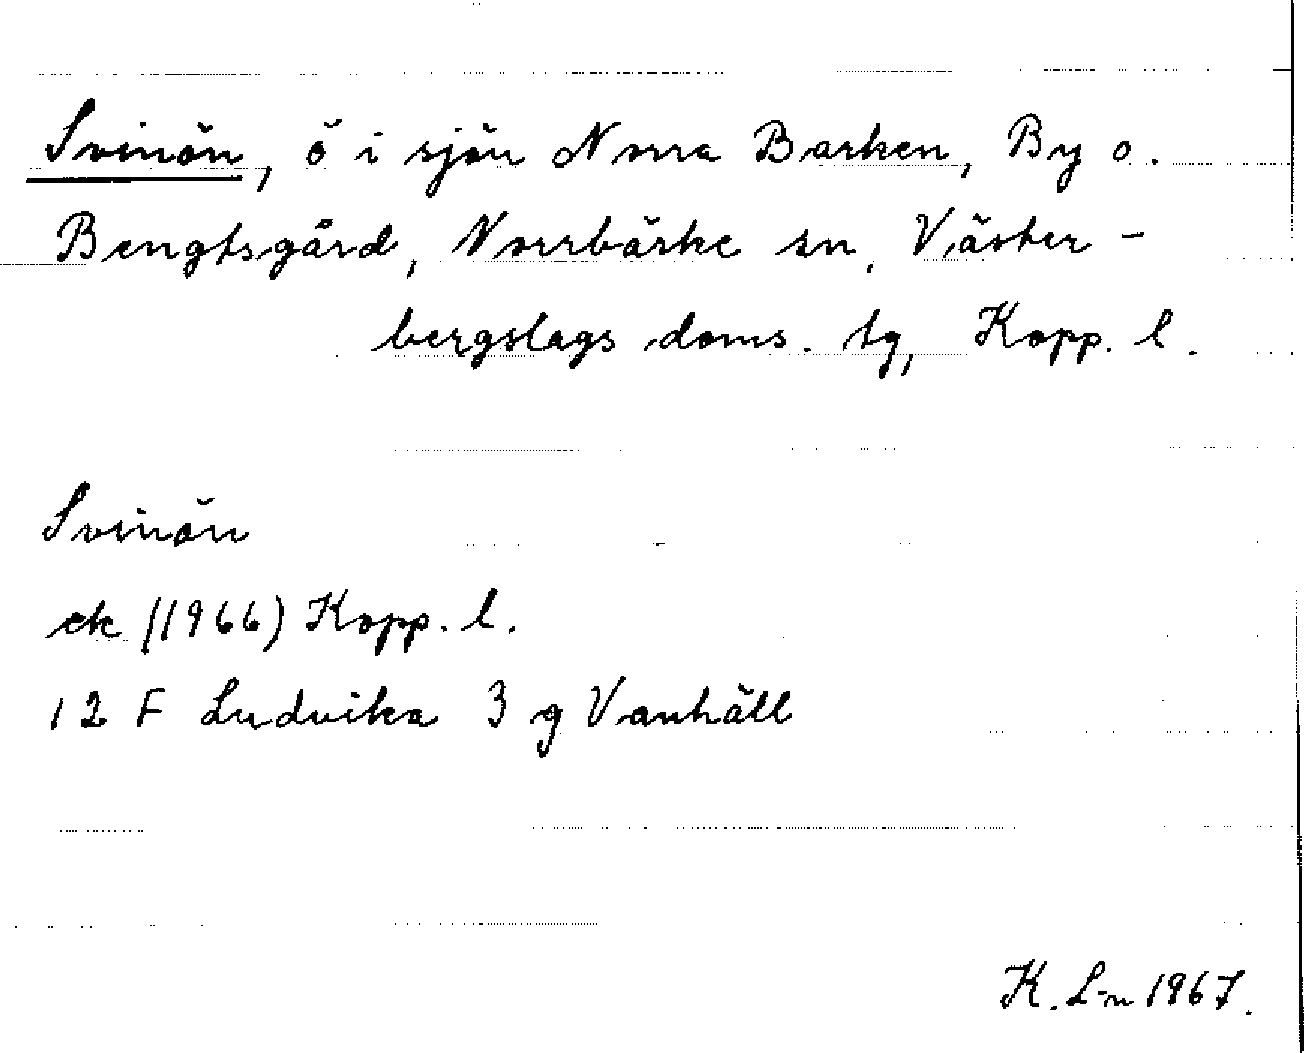 Svinön, ö i sjön Norra Barken, By o.
Bengtsgård, Norrbärke sn, Väster-
bergslags doms. tg, Kopp. l.
Svinön
ek (1966) Kopp. l.
12 F Ludvika 3 g Vanhäll
K. L-n 1967.